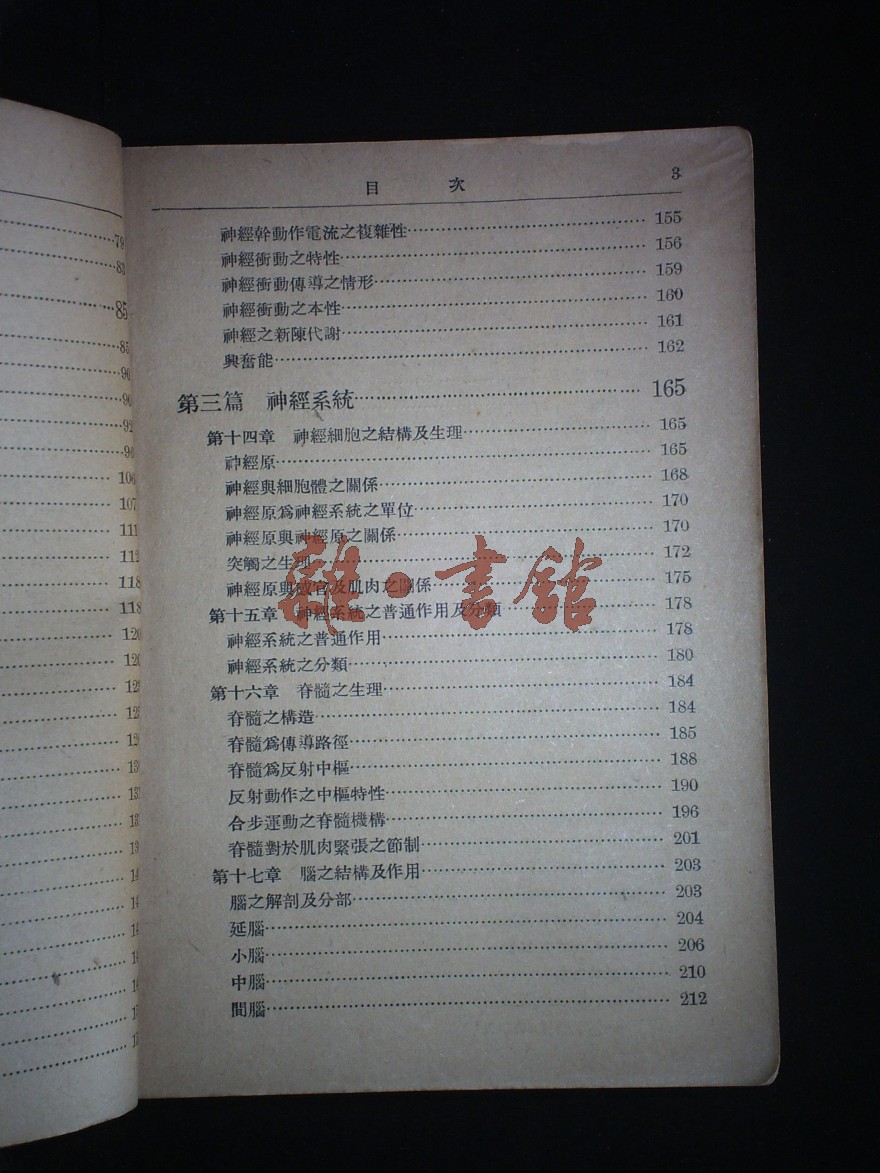 79
83
85
85
90
90
92
106
107
111
112
118
118
目次 3
神經幹動作電流之複雜性 155
神經衝動之特性 156
神經衝動傳導之情形 159
神經衝動之本性 160
神經之新陳代謝 161
興奮能 162
第三篇 神經系統 165
第十四章 神經細胞之結構及生理 165
神經原 165
神經與細胞體之關係 168
神經原爲神經系統之單位 170
神經原與神經原之關係 170
突觸之生理 172
神經原與感官及肌肉之關係 175
第十五章 神經系統之普通作用及分類 178
神經系統之普通作用 178
神經系統之分類 180
第十六章 脊髓之生理 184
脊髓之構造 184
脊髓爲傳導路徑 185
脊髓爲反射中樞 188
反射動作之中樞特性 190
合步運動之脊髓機構 196
脊髓對於肌肉緊張之節制 201
第十七章 腦之結構及作用 203
腦之解剖及分部 203
延腦 204
小腦 206
中腦 210
間腦 212
雜·書館